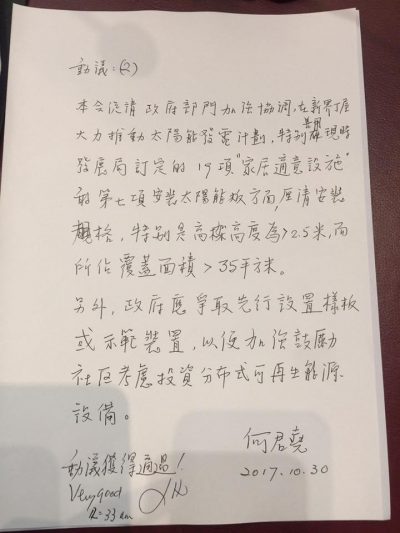 動議：(2)
本會促請政府部門加強協調，在新界丁屋
大力推動太陽能發電計劃，特別善用現時
發展局訂定的19項"家居適意設施"
的第七項安裝太陽能板方面，厘清安裝
規格，特別是高樑高度為>2.5米，而
所佔覆蓋面積>35平方米。
另外，政府應爭取先行設置樣板
或示範裝置，以便加強鼓勵
社區考慮投資分布式可再生能源
設備。
何君堯
2017.10.30
動議獲得通過！
Very good